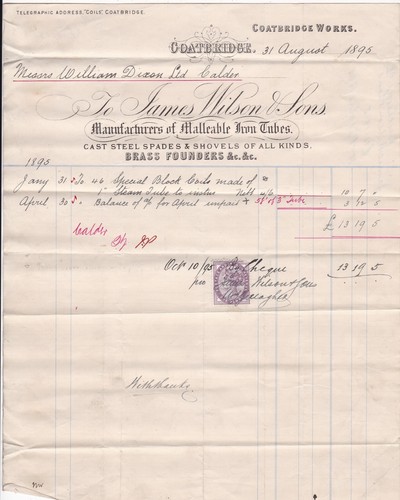 TELEGRAPHIC ADDRESS, "COILS" COATBRIDGE.
COATBRIDGE WORKS.
COATBRIDGE, 31 August 1895
Messrs William Dixon Ltd Calder
To James Wilson & Sons
Manufacturers of Malleable Iron Tubes.
CAST STEEL SPADES & SHOVELS OF ALL KINDS.
BRASS FOUNDERS &c. &c.
1895
Jany 31 To 46 Special Block Coils made of
1" Steam Tube to instns Nett 4/6 10 7 "
April 30 Balance of a/c for April unpaid + 3 12 5
£ 13 19 5
Calder
Octr 10/95 By Cheque 13 19 5
pro James Wilson & Sons
With thanks